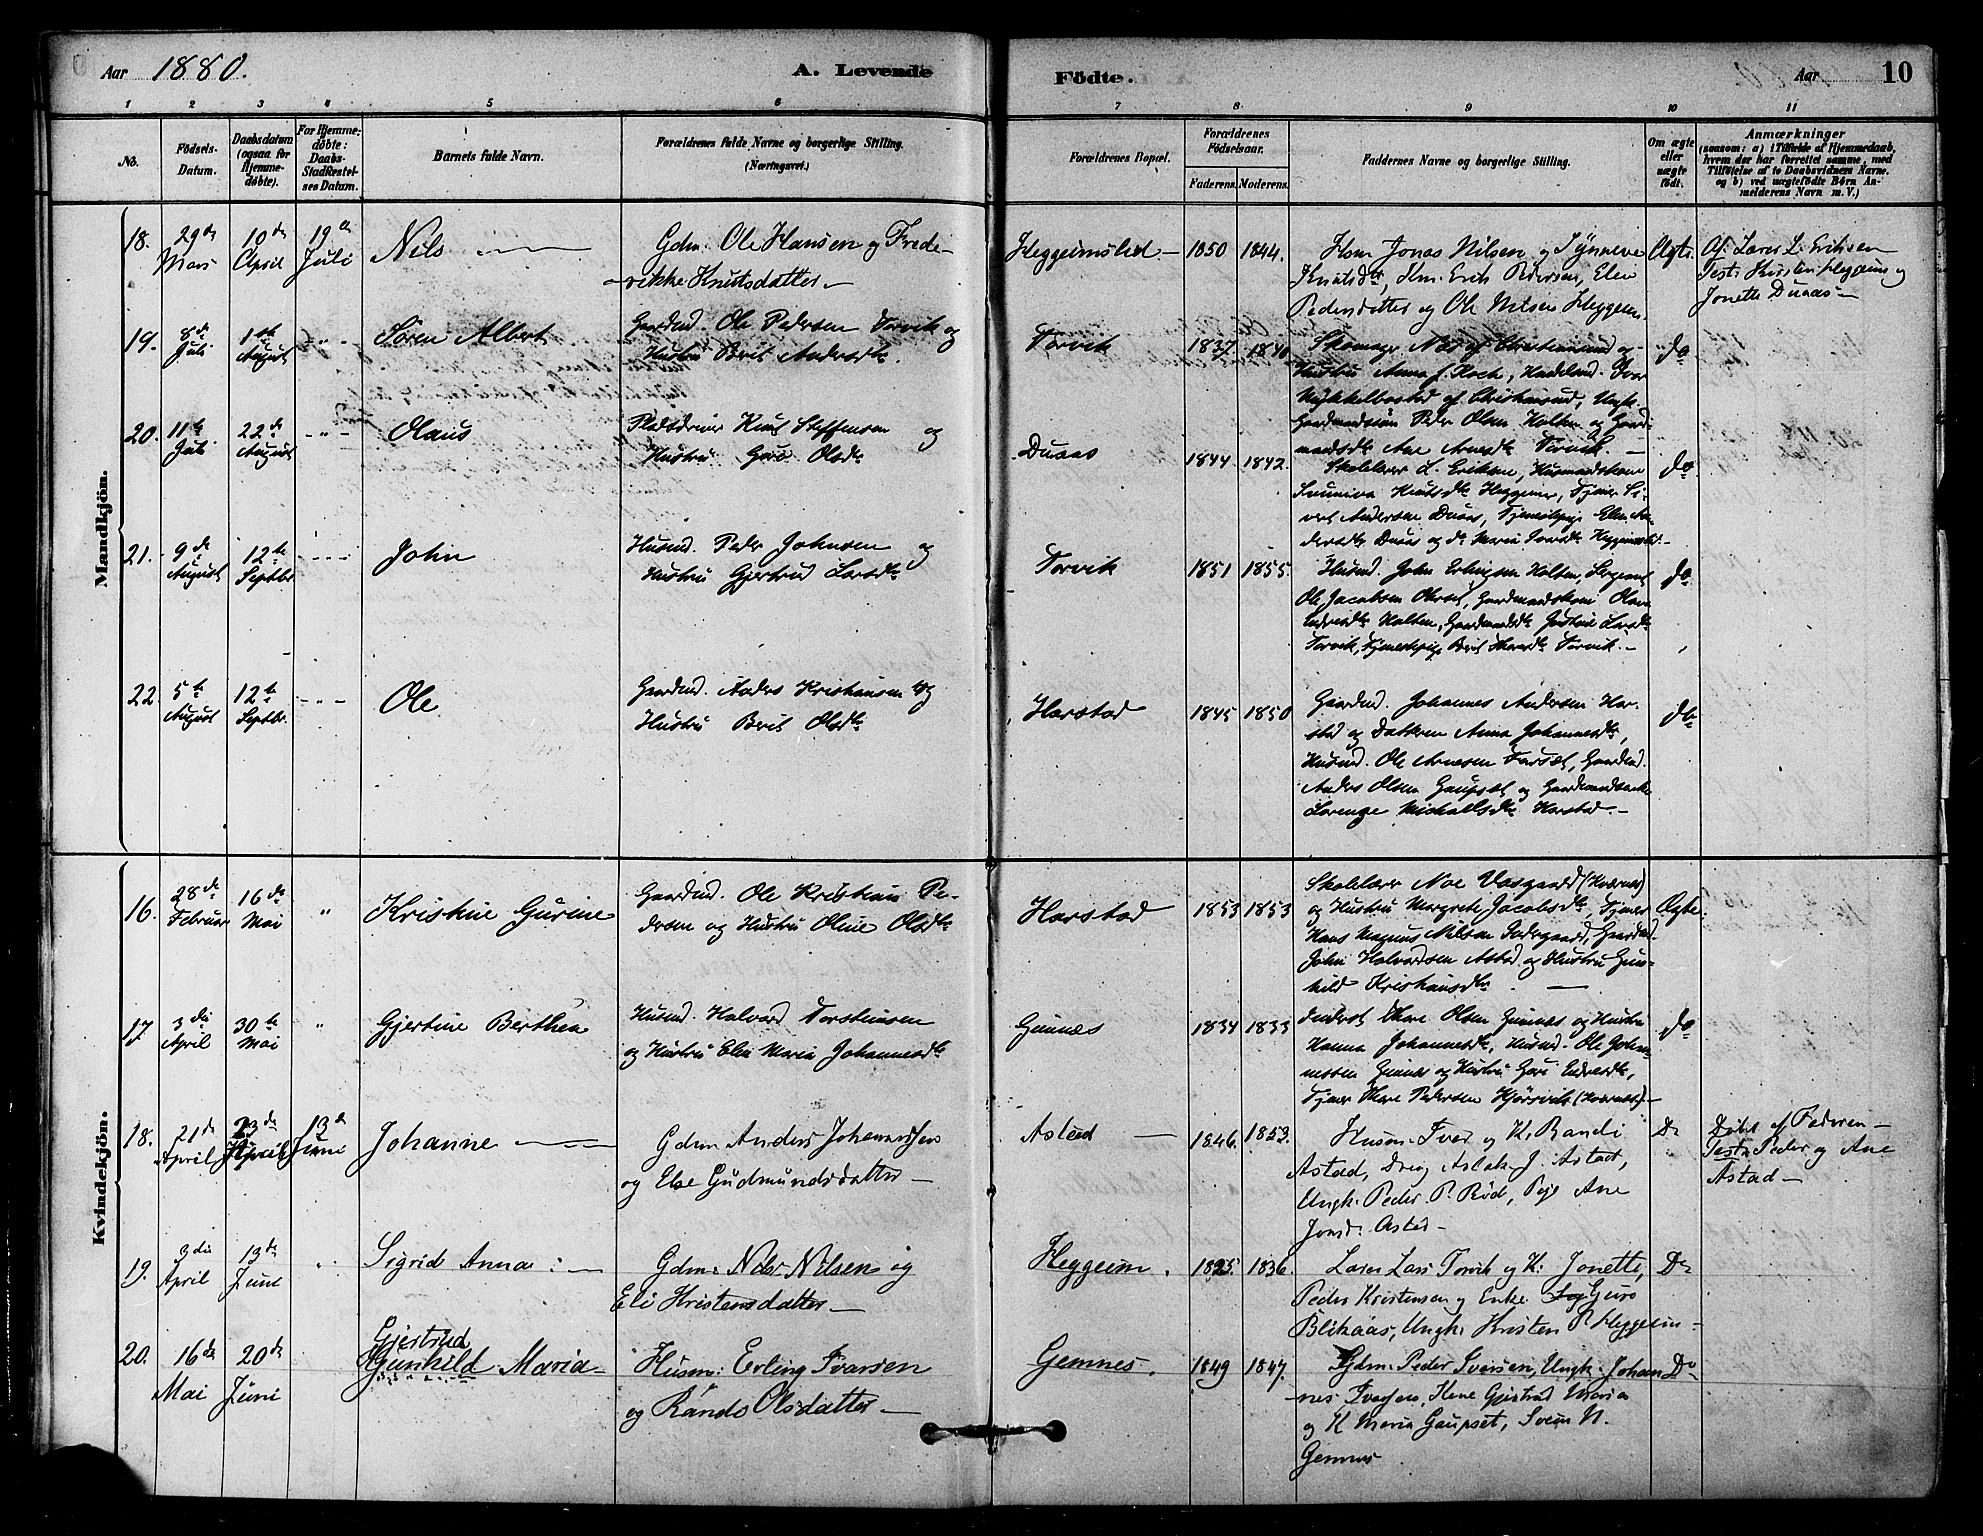 Aar 1880.
A. Levende
Födte.
Aar
10
1 2 3 4 5 6 7 8 9 10 11
No.
Födsels-
Datum.
Daabsdatum
(ogsaa for
Hjemme-
döbte).
For Hjemme-
döbte:
Daabs-
Stadfæstel-
ses Datum.
Barnets fulde Navn.
Forældrenes fulde Navne og borgerlige Stilling.
(Næringsvei.)
Forældrenes Bopæl.
Forældrenes
Födselsaar.
Faderens. Moderens.
Faddernes Navne og borgerlige Stilling.
Om ægte
eller
uægte
födt.
Anmærkninger
(saasom: a) i Tilfælde af Hjemmedaab,
hvem der har forrettet samme, med
Tilföielse af to Daabsvidners Navne.
og b) ved uægtefödte Børn An-
melderens Navn m. V.)
Mandkjön.
18. 29de Mars 10de April 19de Juli Nils
Gdm. Ole Hansen og Frede-
rikke Knutsdatter
Heggeimsled 1850 1844.
Hsm Jonas Nilsen og Synneve
Knutsdtr, Erik Pedersen, Elen
Pedersdatter og Ole Nilsen Heggem
Ægte
Af Lærer L. Eriksen
Test: Kirsten Heggeim og
Jonette Duaas
19. 8de Juli 1ste August Søren Albert
Gaardmd. Ole Pedersen Torvik og
Hustru Berit Andersdtr
Torvik 1837 1840
Skomager Næs af Christiansund og
Hustru Anna f. Koch, Ivar
Mykkelbostad af Christiansund, Ungk.
Gaardmandssøn Peder Olsen Holten og Gaard-
mandsdtr Ane Arnesdtr Torvik.
do
20. 11te Juli 22de August Olaus
Pladsdriver Knut Steffensen og
Hustru Guro Olsdtr
Duaas 1844 1842.
Skolelærer L. Eriksen, Husmandskone
Sunniva Knutsdtr Heggeim, Tjener Si-
vert Andersen Duaas, Tjenestepige Elen An-
dersdtr Duaas og do Maria Heggeimsled
do
21. 9de August 12te Septbr. John
Husmd. Peder Johnsen og
Hustru Gjertrud Larsdtr
Torvik 1851 1855.
Husmd. John Erlingsen Holten, Sergeant
Ole Jacobsen, Gaardmandskone Olava
Endresdtr Holten, Gaardmandsdtr Larsdtr
Torvik, Tjenestepige Berit Torvik.
do
22. 5te August 12te Septbr. Ole
Gaardmd. Anders Kristiansen og
Hustru Berit Olsdtr
Harstad 1845 1850
Gaardmd. Johannes Andersen Har-
stad og Datteren Anna Johannesdtr,
Husmd. Ole Arnesen Farset, Gaardmd.
Anders Olsen Gaupset og Gaardmandsenke
Lorense Michaelsdtr Harstad.
do
Kvindekjön.
16. 28de Februar 16de Mai Kristine Gurine
Gaardmd. Ole Kristian Pe-
dersen og Hustru Oline Olsdtr
Harstad 1853 1853
Skolelærer Noe Vaagaard (Kværnes)
og Hustru Margrete Jacobsdtr, Tjener
Hans Magnus Nilsen, Gaardmd.
John Halvardsen Astad og Hustru Gun-
hild Kristiansdtr
Ægte
17. 3die April 30te Mai Gjertine Berthea
Husmd. Halvard Torstensen
og Hustru Elen Maria Johannesdtr
Gimnæs 1834 1833
Olsen Gimnæs og Hustru
Hanna Johannesdtr, Husmd. Ole Johan-
nessen Gimnæs og Hustru Guri Endresdtr,
Tjener Pedersen (Kværnes)
do
18. 21de April 23de April 13de Juni Johanne
Gdm Anders Johannesen
og Else Gudmundsdatter
Astad 1846. 1853.
Husm. Iver og K. Randi
Astad, Dreng Aslak J. Astad,
Ungk. Peder P. Röd, Pige Ane
Jonsd. Astad
Do
Döbt af Faderen
Test: Peder og Ane
Astad
19. 3die April 13de Juni Sigrid Anna
Gdm. Nils Nilsen og
Eli Kristensdatter
Heggeim. 1825. 1836.
Lærer Lars Torvik og K. Jonette,
Peder Kristensen og Enke Guro
Blikaas, Ungk. Kristen P. Heggeim
Do
20. 16de Mai 20de Juni Gjertrud
Gunhild Maria
Husm. Erling Ivarsen
og Randi Olsdatter
Gemnes. 1849 1847.
Gdm. Peder Iversen, Ungk. Johan-
nes Iversen, Gjertrud Maria
og K Maria Gaupset, Svein N.
Gemnes
Do